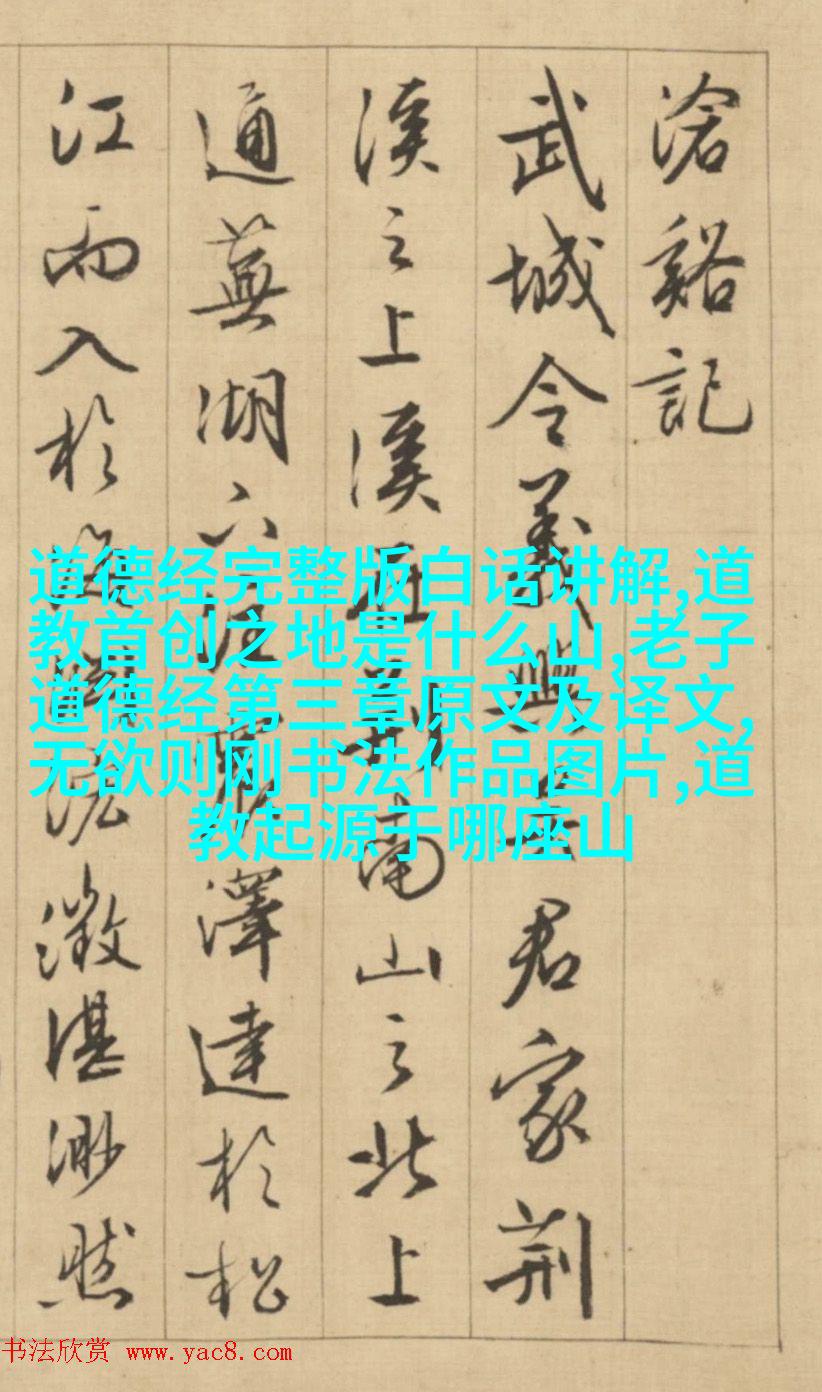 滄谿記
武城令義興吳君家荆
溪之上溪在荆南山之北上
通蕪湖下注震澤達於松
江而入於海泓澂湛渺然
道德经完整版白话讲解,道
教首创之地是什么山,老子
道德经第三章原文及译文,
无欲则刚书法作品图片,道
教起源于哪座山
书法欣赏 www.yac8.com